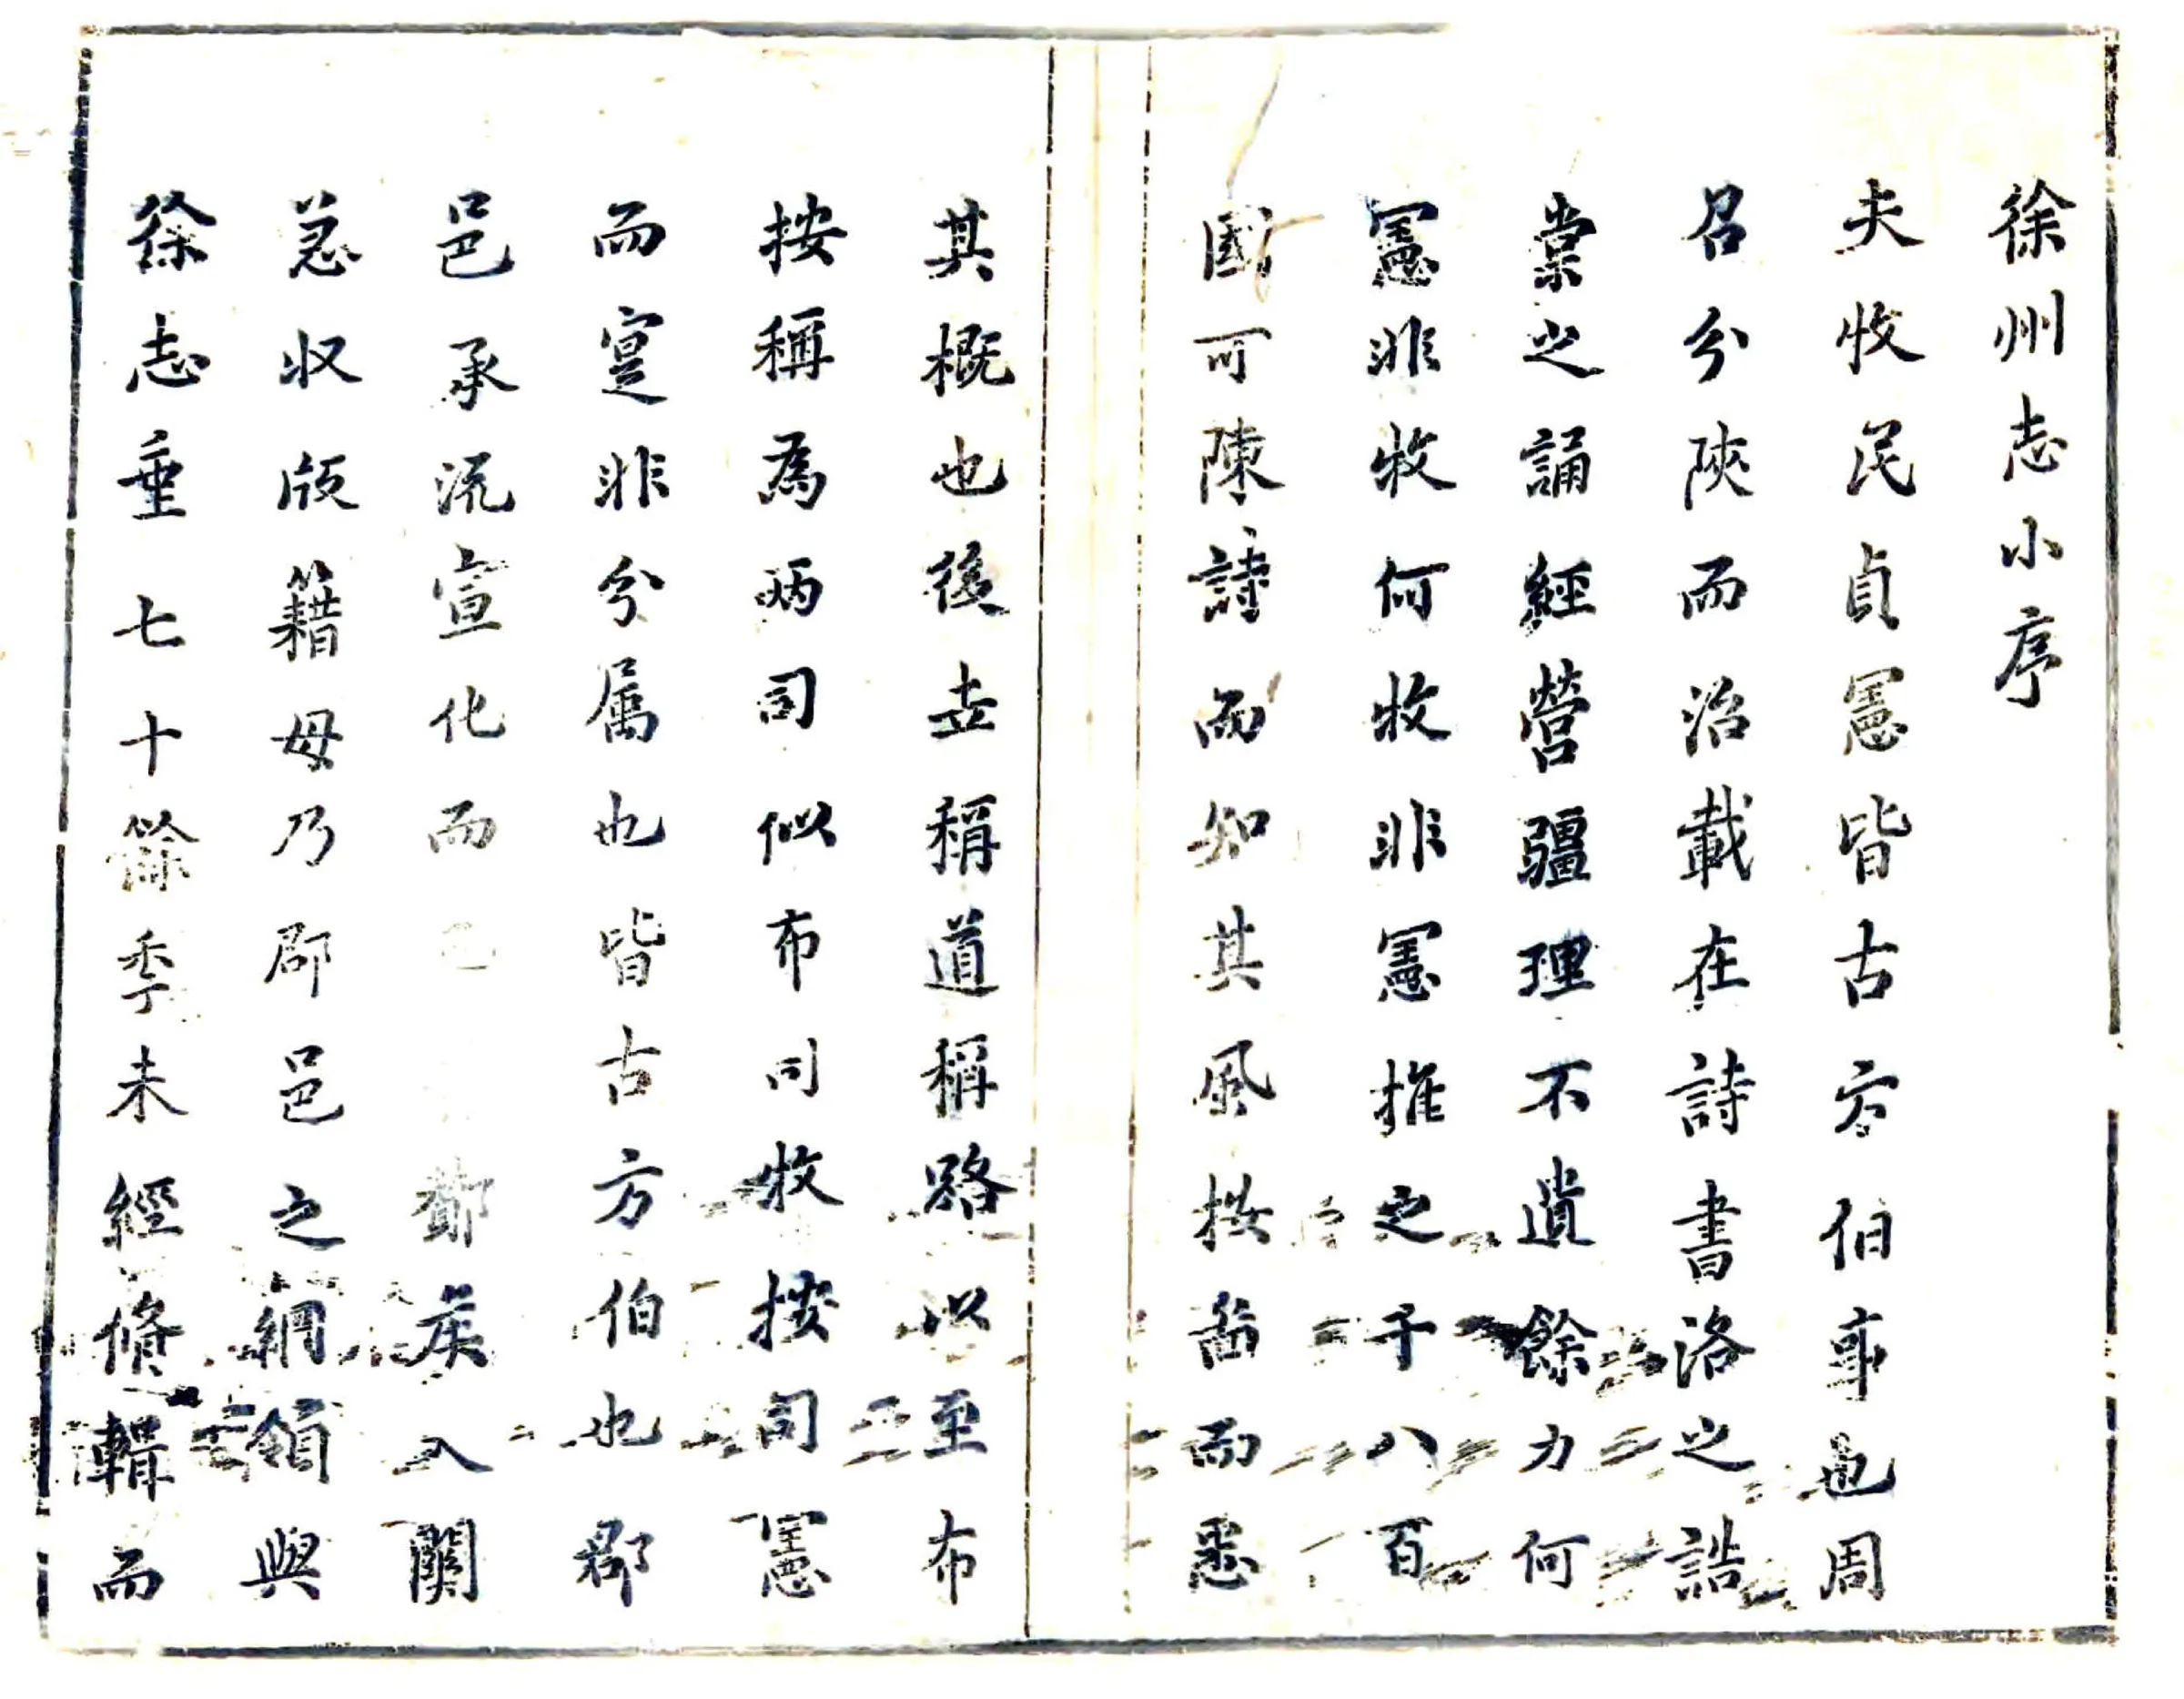 徐州志小序
夫牧民貞憲皆古方伯事也周
召分陝而治載在詩書洛之誥
棠之誦經營疆理不遺餘力何
憲非牧何牧非憲推之千八百
國可陳詩而知其風按啚而悉
其概也後卋稱道稱路以至布
按稱為兩司似布司牧按司憲
而寔非分属也皆古方伯也郡
邑承流宣化而已酇矦入關
急収版籍毋乃郡邑之綱領與
徐志垂七十餘季未經脩輯而